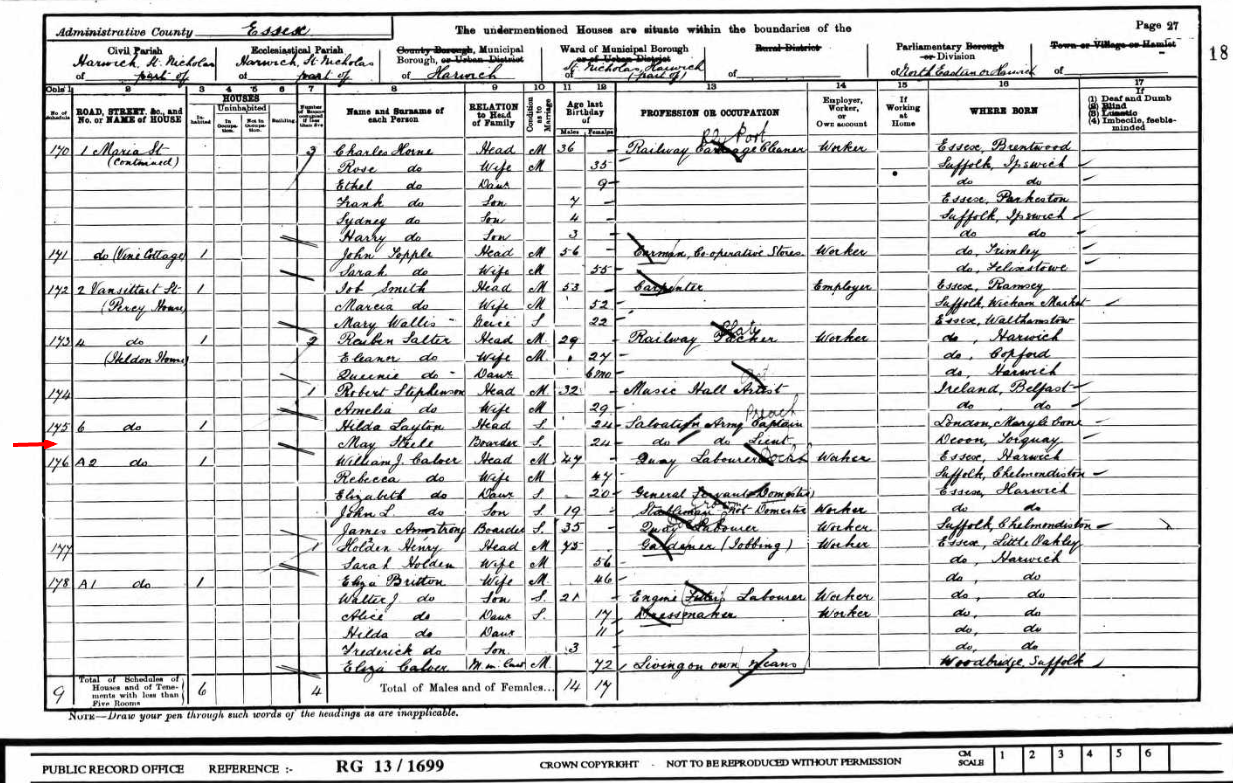 Administrative County Essex The undermentioned Houses are situate within the boundaries of the Page 27
18
Civil Parish Ecclesiastical Parish County Borough, Municipal Borough, or Urban District Ward of Municipal Borough or of Urban District Rural District Parliamentary Borough or Division Town or Village or Hamlet
of Harwich, St. Nicholas part of of Harwich, St Nicholas part of of Harwich of St. Nicholas, Harwich (part of) of of North Eastern or Harwich of
Cols 1 2 3 4 5 6 7 8 9 10 11 12 13 14 15 16 17
No. of Schedule ROAD, STREET, &c., and No. or NAME of HOUSE HOUSES Inhabited Uninhabited In Occupation Not in Occupation Building Number of Rooms occupied if less than five Name and Surname of each Person RELATION to Head of Family Condition as to Marriage Age last Birthday of Males Females PROFESSION OR OCCUPATION Employer, Worker, or Own account If Working at Home WHERE BORN If (1) Deaf and Dumb (2) Blind (3) Lunatic (4) Imbecile, feeble-minded
170 1 Maria St (Continued) 3 Charles Horne Head M 36 Railway Carriage Cleaner Worker Essex, Brentwood
Rose do Wife M 35 Suffolk, Ipswich
Ethel do Daur 9 do do
Frank do Son 7 Essex, Parkeston
Sydney do Son 4 Suffolk, Ipswich
Harry do Son 3 do do
171 do (Vine Cottage) 1 John Topple Head M 56 Carman, Co-operative Stores Worker do, Trimley
Sarah do Wife M 55 do, Felixstowe
172 2 Vansittart St (Percy House) 1 Job Smith Head M 53 Carpenter Employer Essex, Ramsey
Marcia do Wife M 52 Suffolk, Wickam Market
Mary Wallis Neice S 22 Essex, Walthamstow
173 4 do 1 2 Reuben Salter Head M 29 Railway Packer Worker do, Harwich
Eleanor do Wife M 27 do, Copford
Queenie do Daur 6mo do, Harwich
174 1 Robert Stephenson Head M 32 Music Hall Artist Ireland, Belfast
Amelia do Wife M 29 do, do
175 6 do 1 Hilda Layton Head S 24 Salvation Army Captain London, Maryle bone
May Steele Boarder S 24 do do Lieut Devon, Torquay
176 A2 do 1 William J. Calver Head M 47 Quay Labourer Dock Worker Essex, Harwich
Rebecca do Wife M 47 Suffolk, Chelmondiston
Elizabeth do Daur S 20 General Servant (Domestic) Essex, Harwich
John L. do Son S 19 Stableman Not Domestic Worker do do
James Armstrong Boarder S 35 Quay Labourer Worker Suffolk, Chelmondiston
177 1 Holden Henry Head M 75 Gardener (Jobbing) Worker Essex, Little Oakley
Sarah Holden Wife M 56 do, Harwich
178 A1 do 1 Eliza Britton Wife M 46 do, do
Walter J do Son S 21 Engine Fitter's Labourer Worker do, do
Alice do Daur S 17 Dressmaker Worker do, do
Hilda do Daur 11 do, do
Frederick do Son 3 do, do
Eliza Calver M in Law M 72 Living on own means Woodbridge, Suffolk
9 Total of Schedules of Houses and of Tenements with less than Five Rooms 6 4 Total of Males and of Females... 14 17
NOTE—Draw your pen through such words of the headings as are inapplicable.
PUBLIC RECORD OFFICE REFERENCE :- RG 13 / 1699 CROWN COPYRIGHT - NOT TO BE REPRODUCED WITHOUT PERMISSION CM SCALE 1 2 3 4 5 6